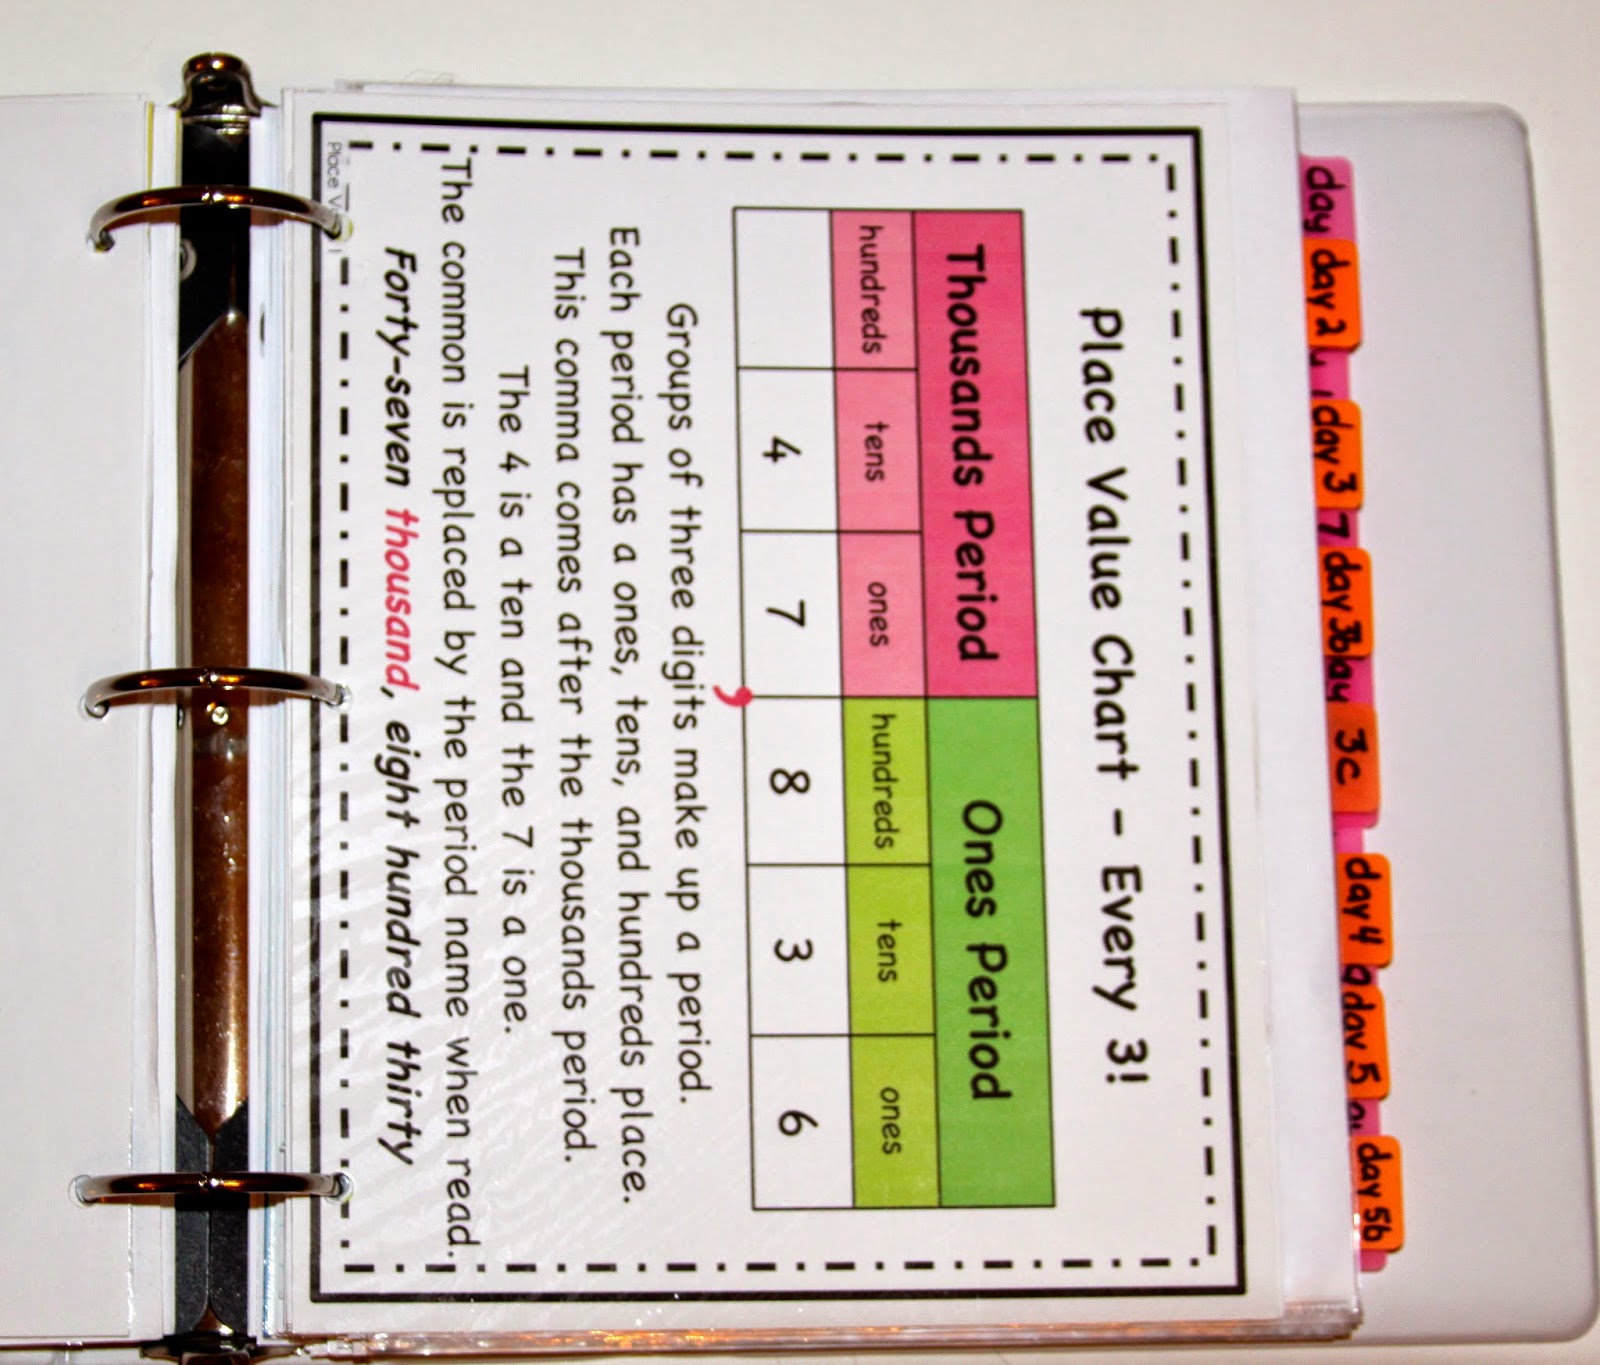 Place Value Chart - Every 3!
Thousands Period Ones Period
hundreds tens ones hundreds tens ones
4 7 , 8 3 6
Groups of three digits make up a period.
Each period has a ones, tens, and hundreds place.
This comma comes after the thousands period.
The 4 is a ten and the 7 is a one.
The common is replaced by the period name when read.
Forty-seven thousand, eight hundred thirty
Place
day
day 2
day 3
7
day 3b
day
3c
day 4
day 5
day 5b